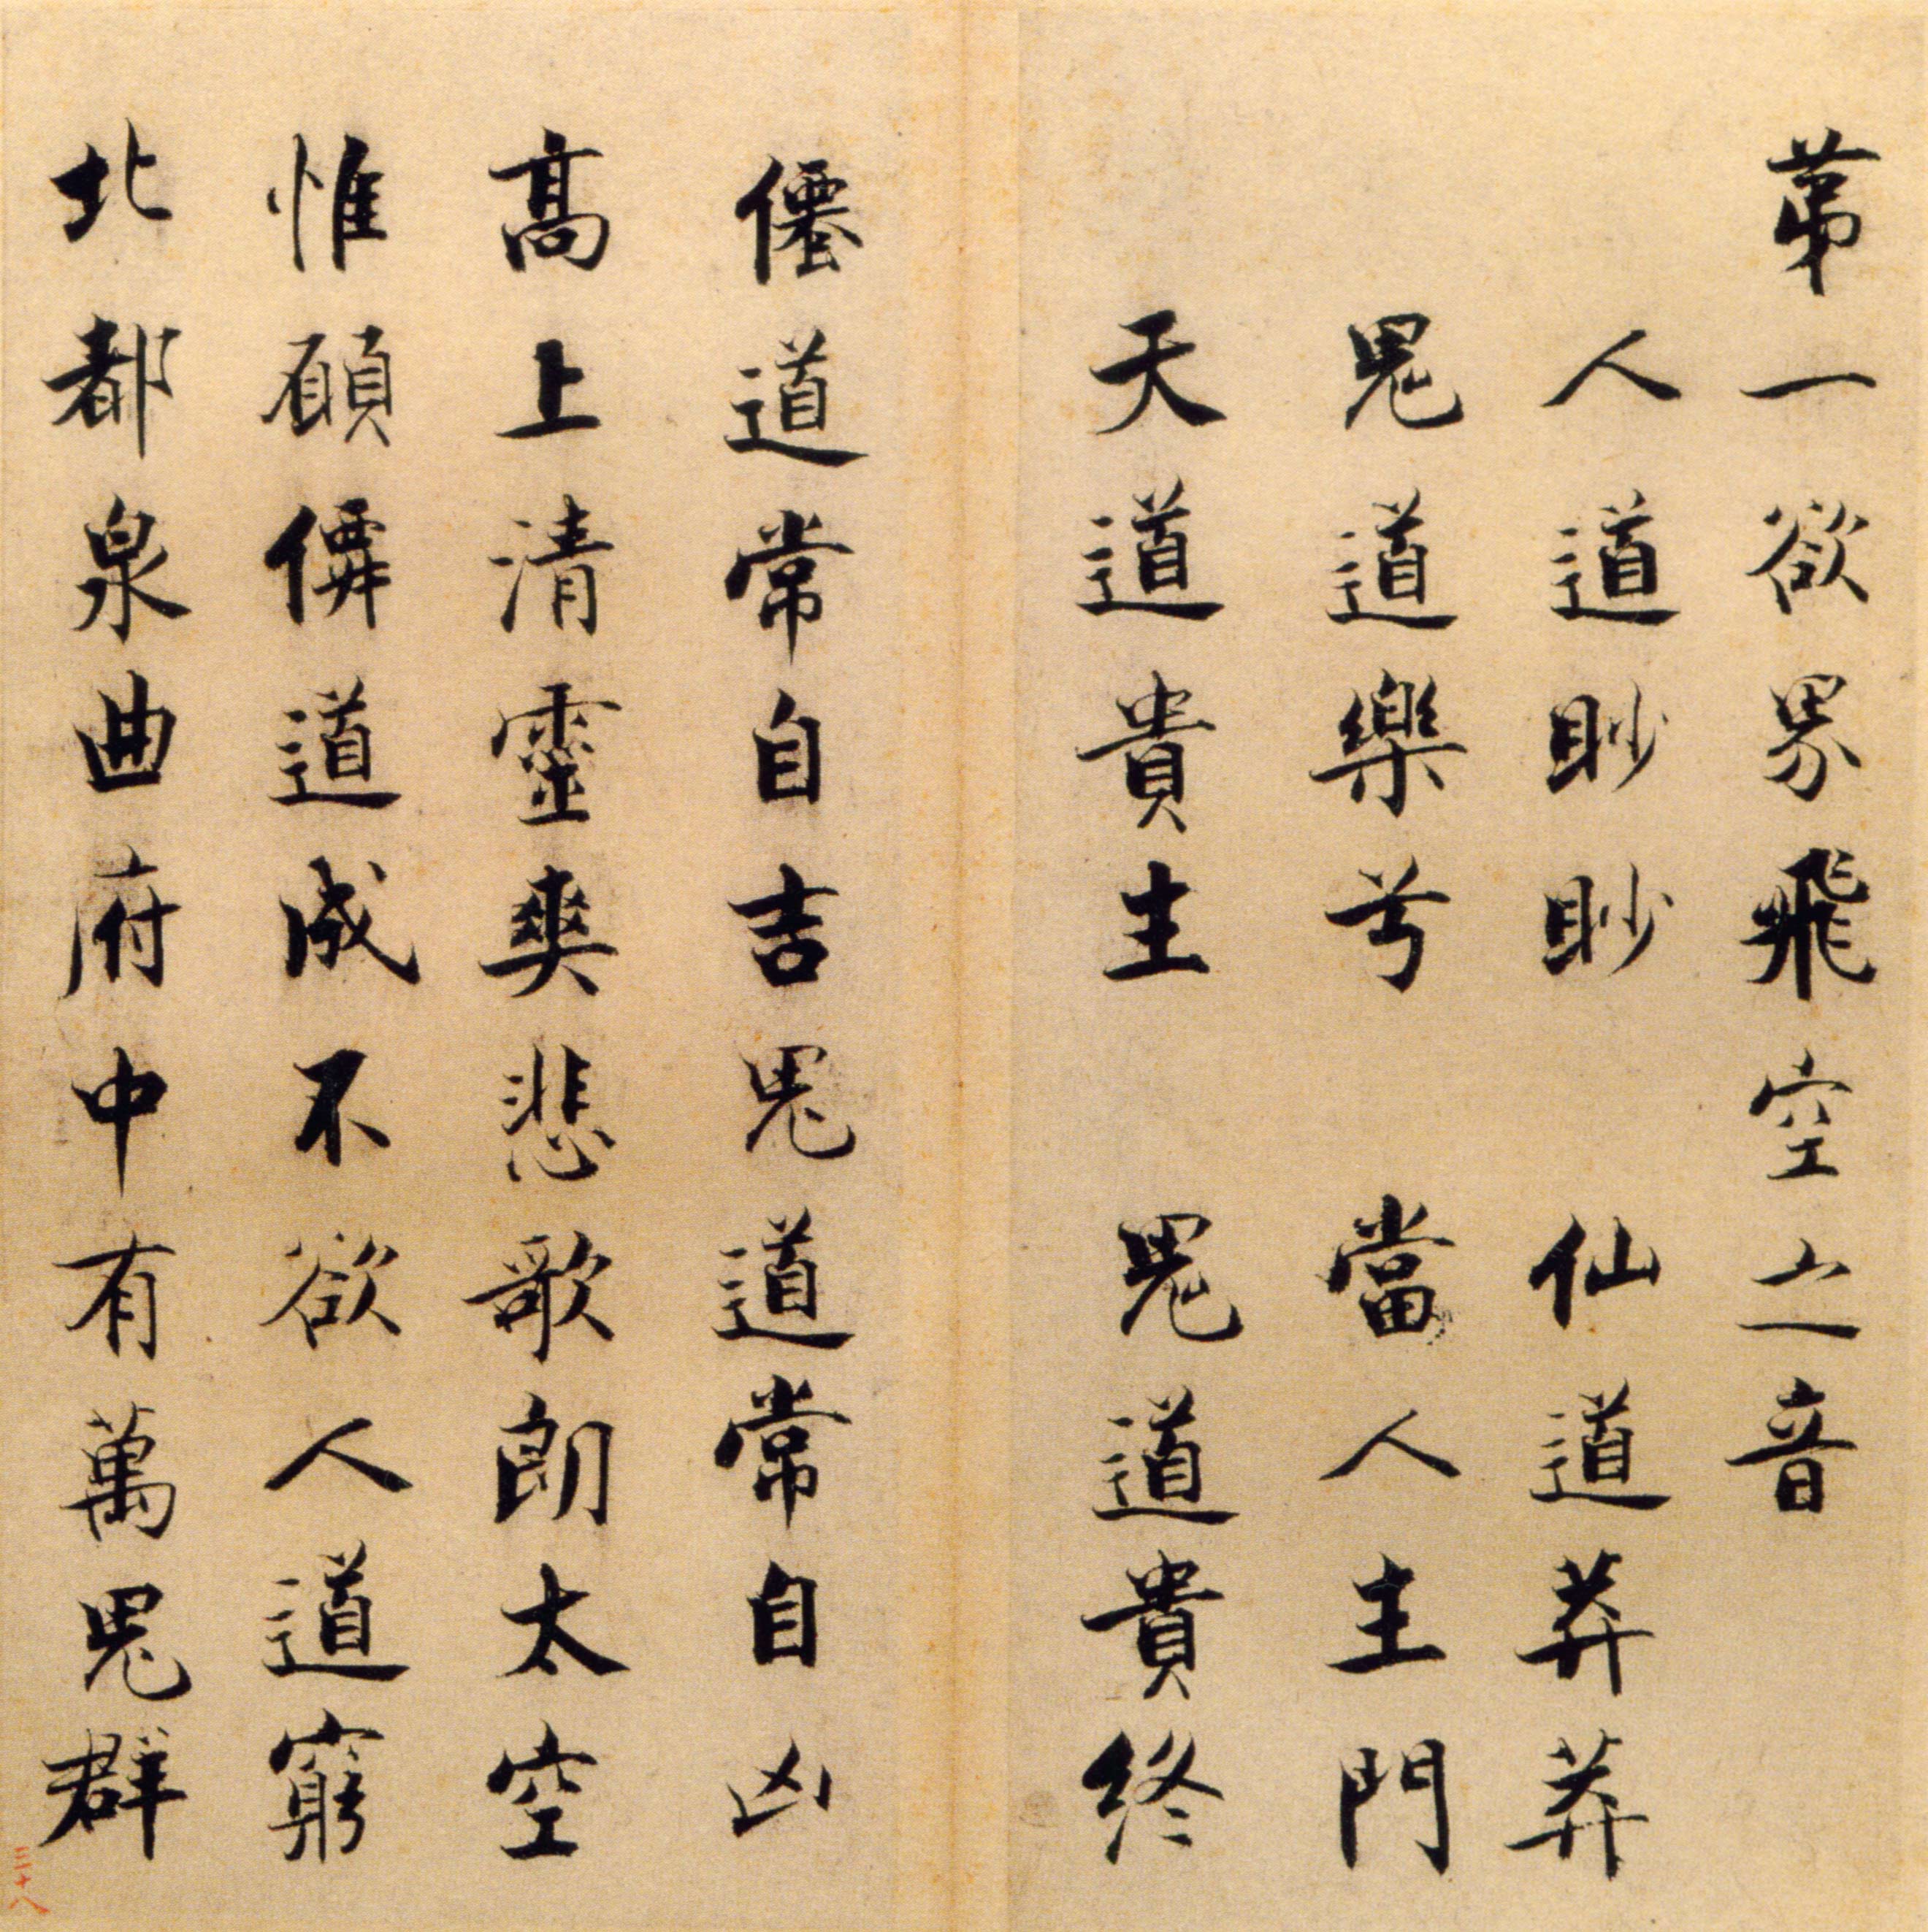 苐一欲界飛空之音
人道眇眇　仙道莽莽
鬼道樂兮　當人主門
天道貴主　鬼道貴終
僊道常自吉鬼道常自凶
髙上清靈爽悲歌朗太空
惟願僊道成不欲人道窮
北都泉曲府中有萬鬼群
三十八